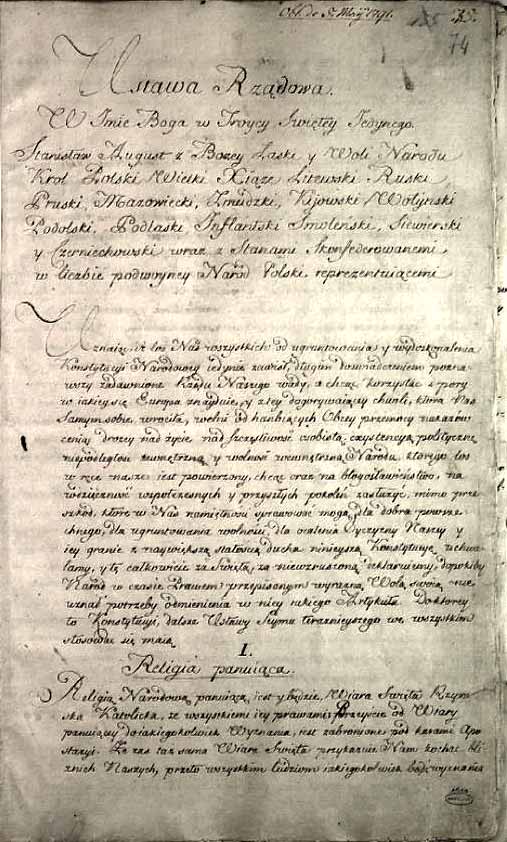 Obl. de 5. Maij 1791.
74
Ustawa Rządowa.
W Imie Boga w Troycy Swiętey Iedynego.
Stanisław August z Bożey Łaski y Woli Narodu
Krol Polski Wielki Xiąże Litewski Ruski
Pruski, Mazowiecki, Zmudzki, Kijowski Wołynski
Podolski, Podlaski Inflantski Smoleński, Siewierski
y Czerniechowski wraz z Stanami Skonfederowanemi
w liczbie podwoyney Naród Polski reprezentuiącemi
Uznaiąc, iż los Nas wszystkich od ugruntowania y wydoskonalenia
Konstytucyi Narodowey iedynie zawisł, długim doświadczeniem pozna-
wszy zadawnione Rządu Naszego wady, a chcąc korzystać z pory
w iakiey się Europa znayduie, y z tey dogorywaiącey chwili, która Nas
Samym sobie wrociła, wolni od hańbiących Obcey przemocy nakazów
ceniąc drożey nad życie nad szczęśliwość osobistą exystencyą polityczną
niepodległość zewnętrzną y wolność wewnętrzną Narodu, ktorego los
w ręce nasze iest powierzony, chcąc oraz na błogosławieństwo, na
wdzięczność współczesnych y przyszłych pokoleń zasłużyć, mimo prze-
szkód, które w Nas namiętności sprawować mogą, dla dobra powsze-
chnego, dla ugruntowania wolności, dla ocalenia Oyczyzny Naszey y
iey granic z naywiększą stałością ducha ninieyszą Konstytucyę uchwa-
lamy, y tę całkowicie za świętą, za niewzruszoną deklaruiemy, dopókiby
Naród w czasie Prawem przepisanym wyraźną Wolą swoią nie
uznał potrzeby odmienienia w niey iakiego Artykułu. Do ktorey
to Konstytucyi, dalsze Ustawy Seymu teraznieyszego we wszystkim
stosować się maią
I.
Religia panuiąca.
Religią Narodową panuiącą iest y będzie Wiara Święta Rzym-
ska Katolicka, ze wszystkiemi iey prawami, Przeyście od Wiary
panuiącey do iakiegokolwiek Wyznania, iest zabronione pod karami Apo-
stazyi. Że zaś taż sama Wiara Święta przykazuie Nam kochać bli-
źnich Naszych, przeto wszystkim ludziom iakiegokolwiek bądź wyznania